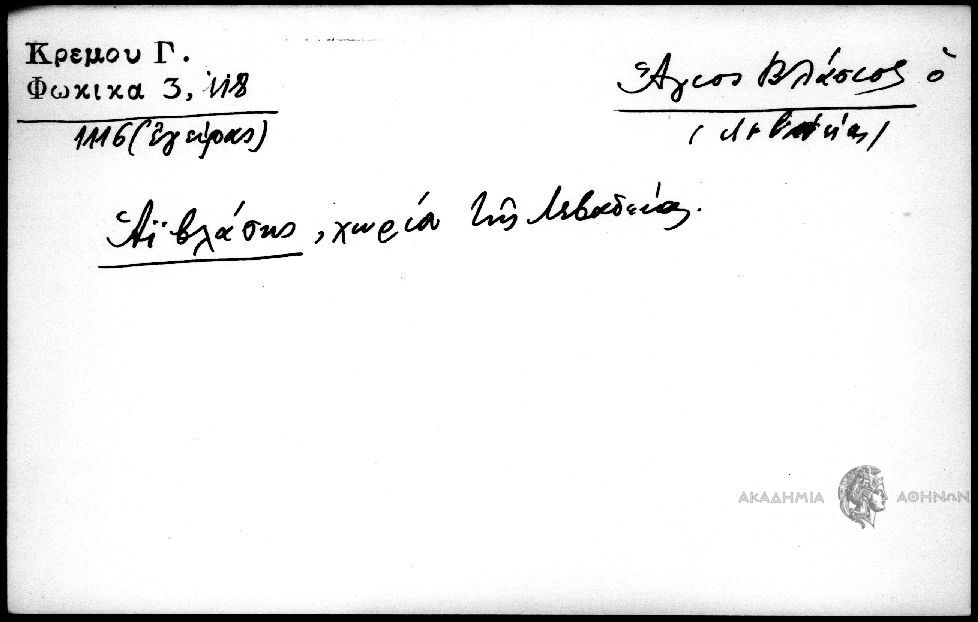 Κρεμου Γ.
Φωκικα 3, 118
1116 (ἐγείρας)
Ἅγιος Βλάσιος ὁ
(Λεβαδείας)
Ἅϊ Βλάσης, χωρίον τῆς Λεβαδείας.
ΑΚΑΔΗΜΙΑ ΑΘΗΝΩΝ